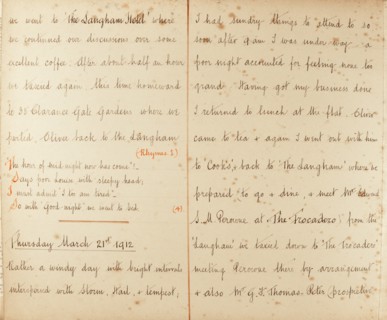 we went to The Langham Hotel where
we continued our discussions over some
excellent coffee. After about half an hour
we taxied again, this time homeward
to 30 Clarence Gate Gardens where we
parted, Oliver back to the Langham
(Rhymes 2)
The hour of bed night now has come!
Days poor house with sleepy head;
I must admit I to am tired
So with "good night" we went to bed.
(4)
Thursday March 21st 1912
Rather a windy day with bright intervals
interspaced with Storm, Hail, & tempest,
I had sundry things to attend to so
soon after 9 am I was under way. a
poor night accounted for feeling none too
grand. Having got my business done
I returned to lunch at the flat. Oliver
came to tea & again I went out with him
to Cook's, & back to 'The Langham' where he
prepared to go & dine, & meet Mr
S. M Perowne at The Trocadero from the
'Langham' we taxied down to 'The Trocadero'
meeting Perowne there by arrangement
& also Mr G. H. Thomas